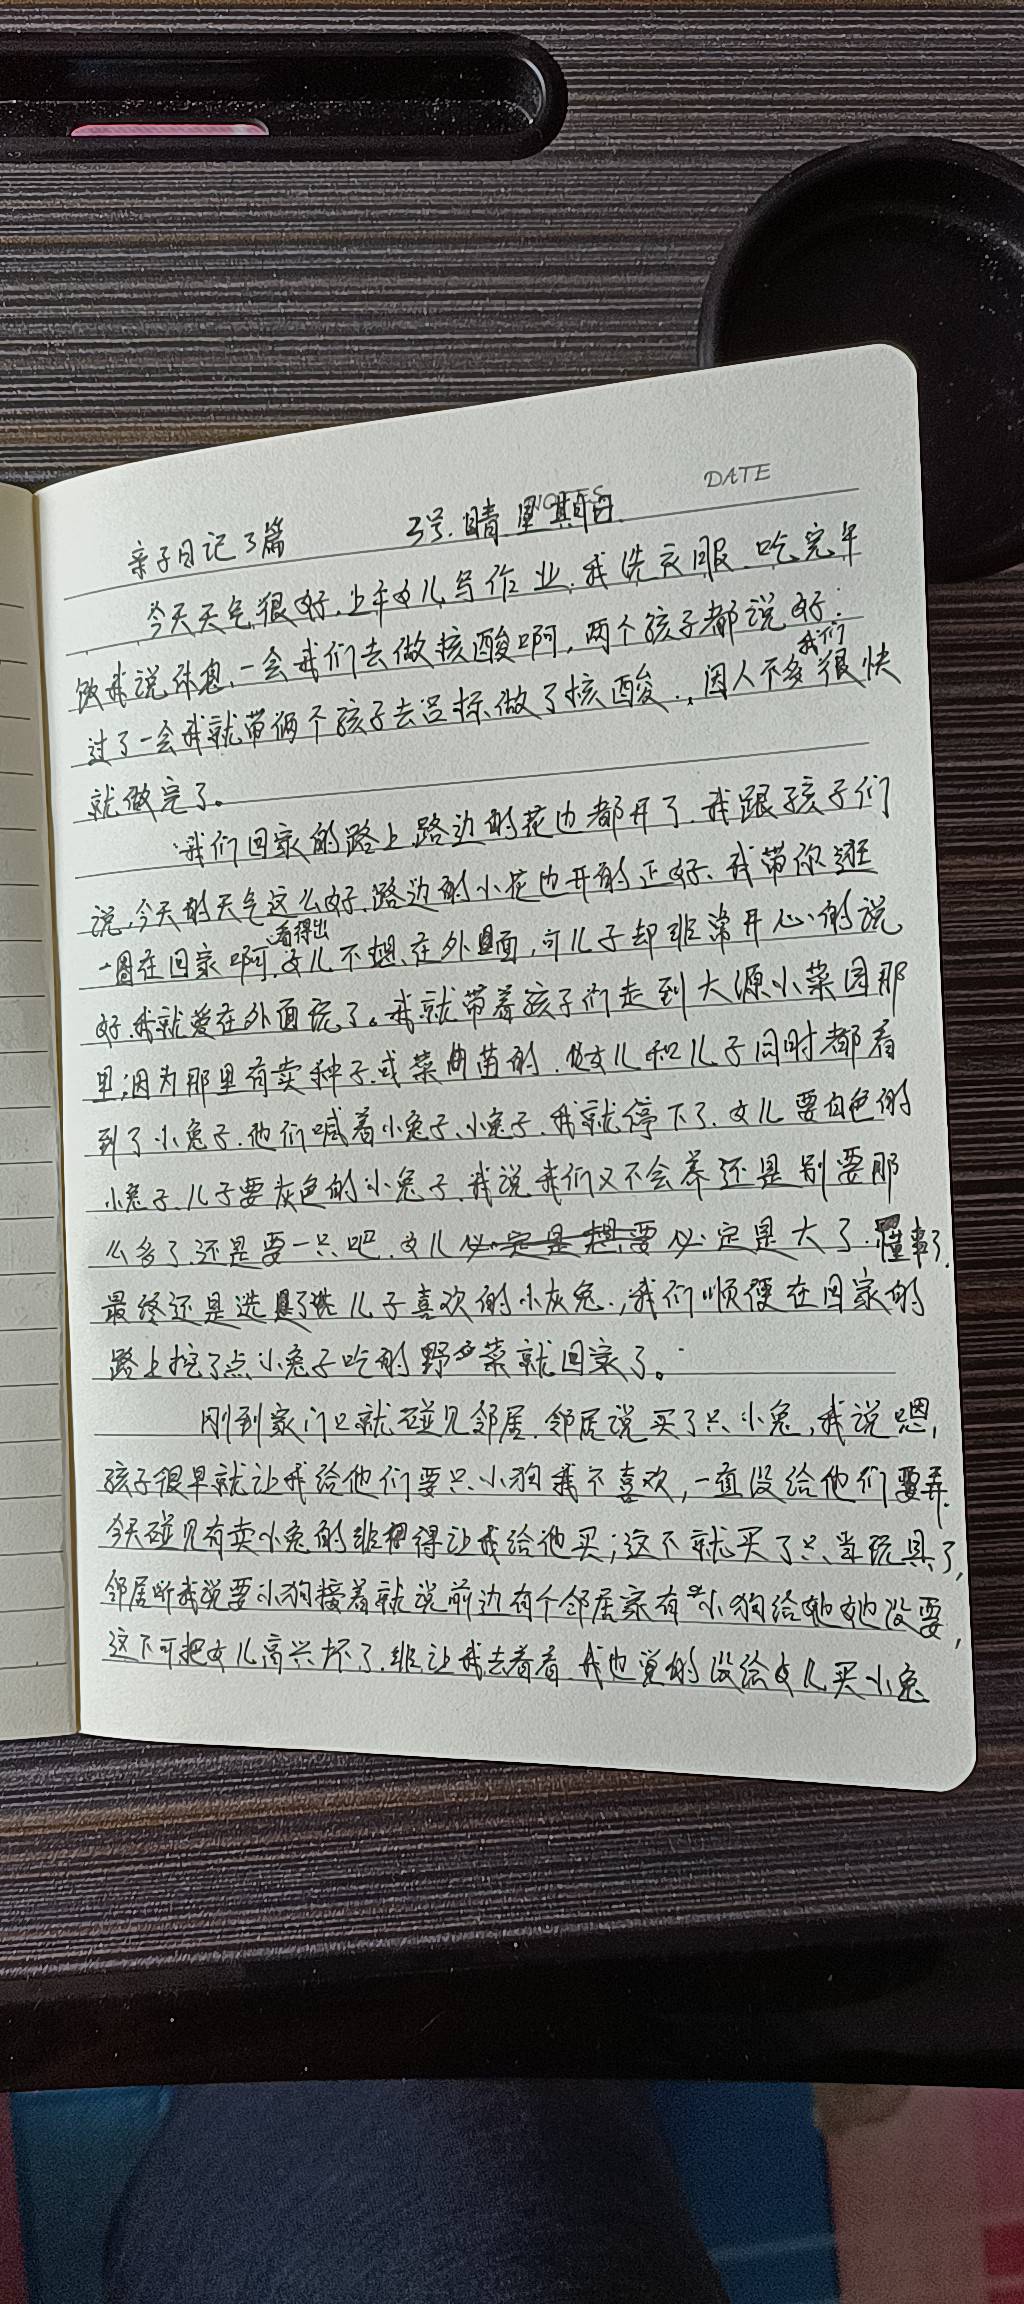 DATE
NOTES
亲子日记3篇 3号.晴 星期日.
今天天气很好.上午女儿写作业.我洗衣服.吃完午
饭我说休息.一会我们去做核酸啊,两个孩子都说好.
过了一会我就带俩个孩子去吕标做了核酸.,因人不多我们很快
就做完了。
我们回家的路上路边的花也都开了.我跟孩子们
说,今天的天气这么好.路边的小花也开的正好、我带你逛
一圈在回家啊.看得出女儿不想在外面,可儿子却非常开心的说
好.我就爱在外面玩了。我就带着孩子们走到大源小菜园那
里;因为那里有卖种子.或菜苗的.女儿和儿子同时都看
到了小兔子.他们喊着小兔子、小兔子.我就停下了.女儿要白色的
小兔子.儿子要灰色的小兔子.我说我们又不会养还是别要那
么多了.还是要一只吧.女儿必定是想要必定是大了.懂事了.
最终还是选了儿子喜欢的小灰兔.,我们顺便在回家的
路上挖了点小兔子吃的野菜就回家了。
刚到家门口就碰见邻居.邻居说买了只小兔,我说恩,
孩子很早就让我给他们要只小狗我不喜欢,一直没给他们要弄.
今天碰见有卖小兔的非得让我给他买;这不就买了只当玩具了,
邻居听我说要小狗接着就说前边有个邻居家有小狗给她她没要,
这下可把女儿高兴坏了.非让我去看看.我也觉的没给女儿买小兔